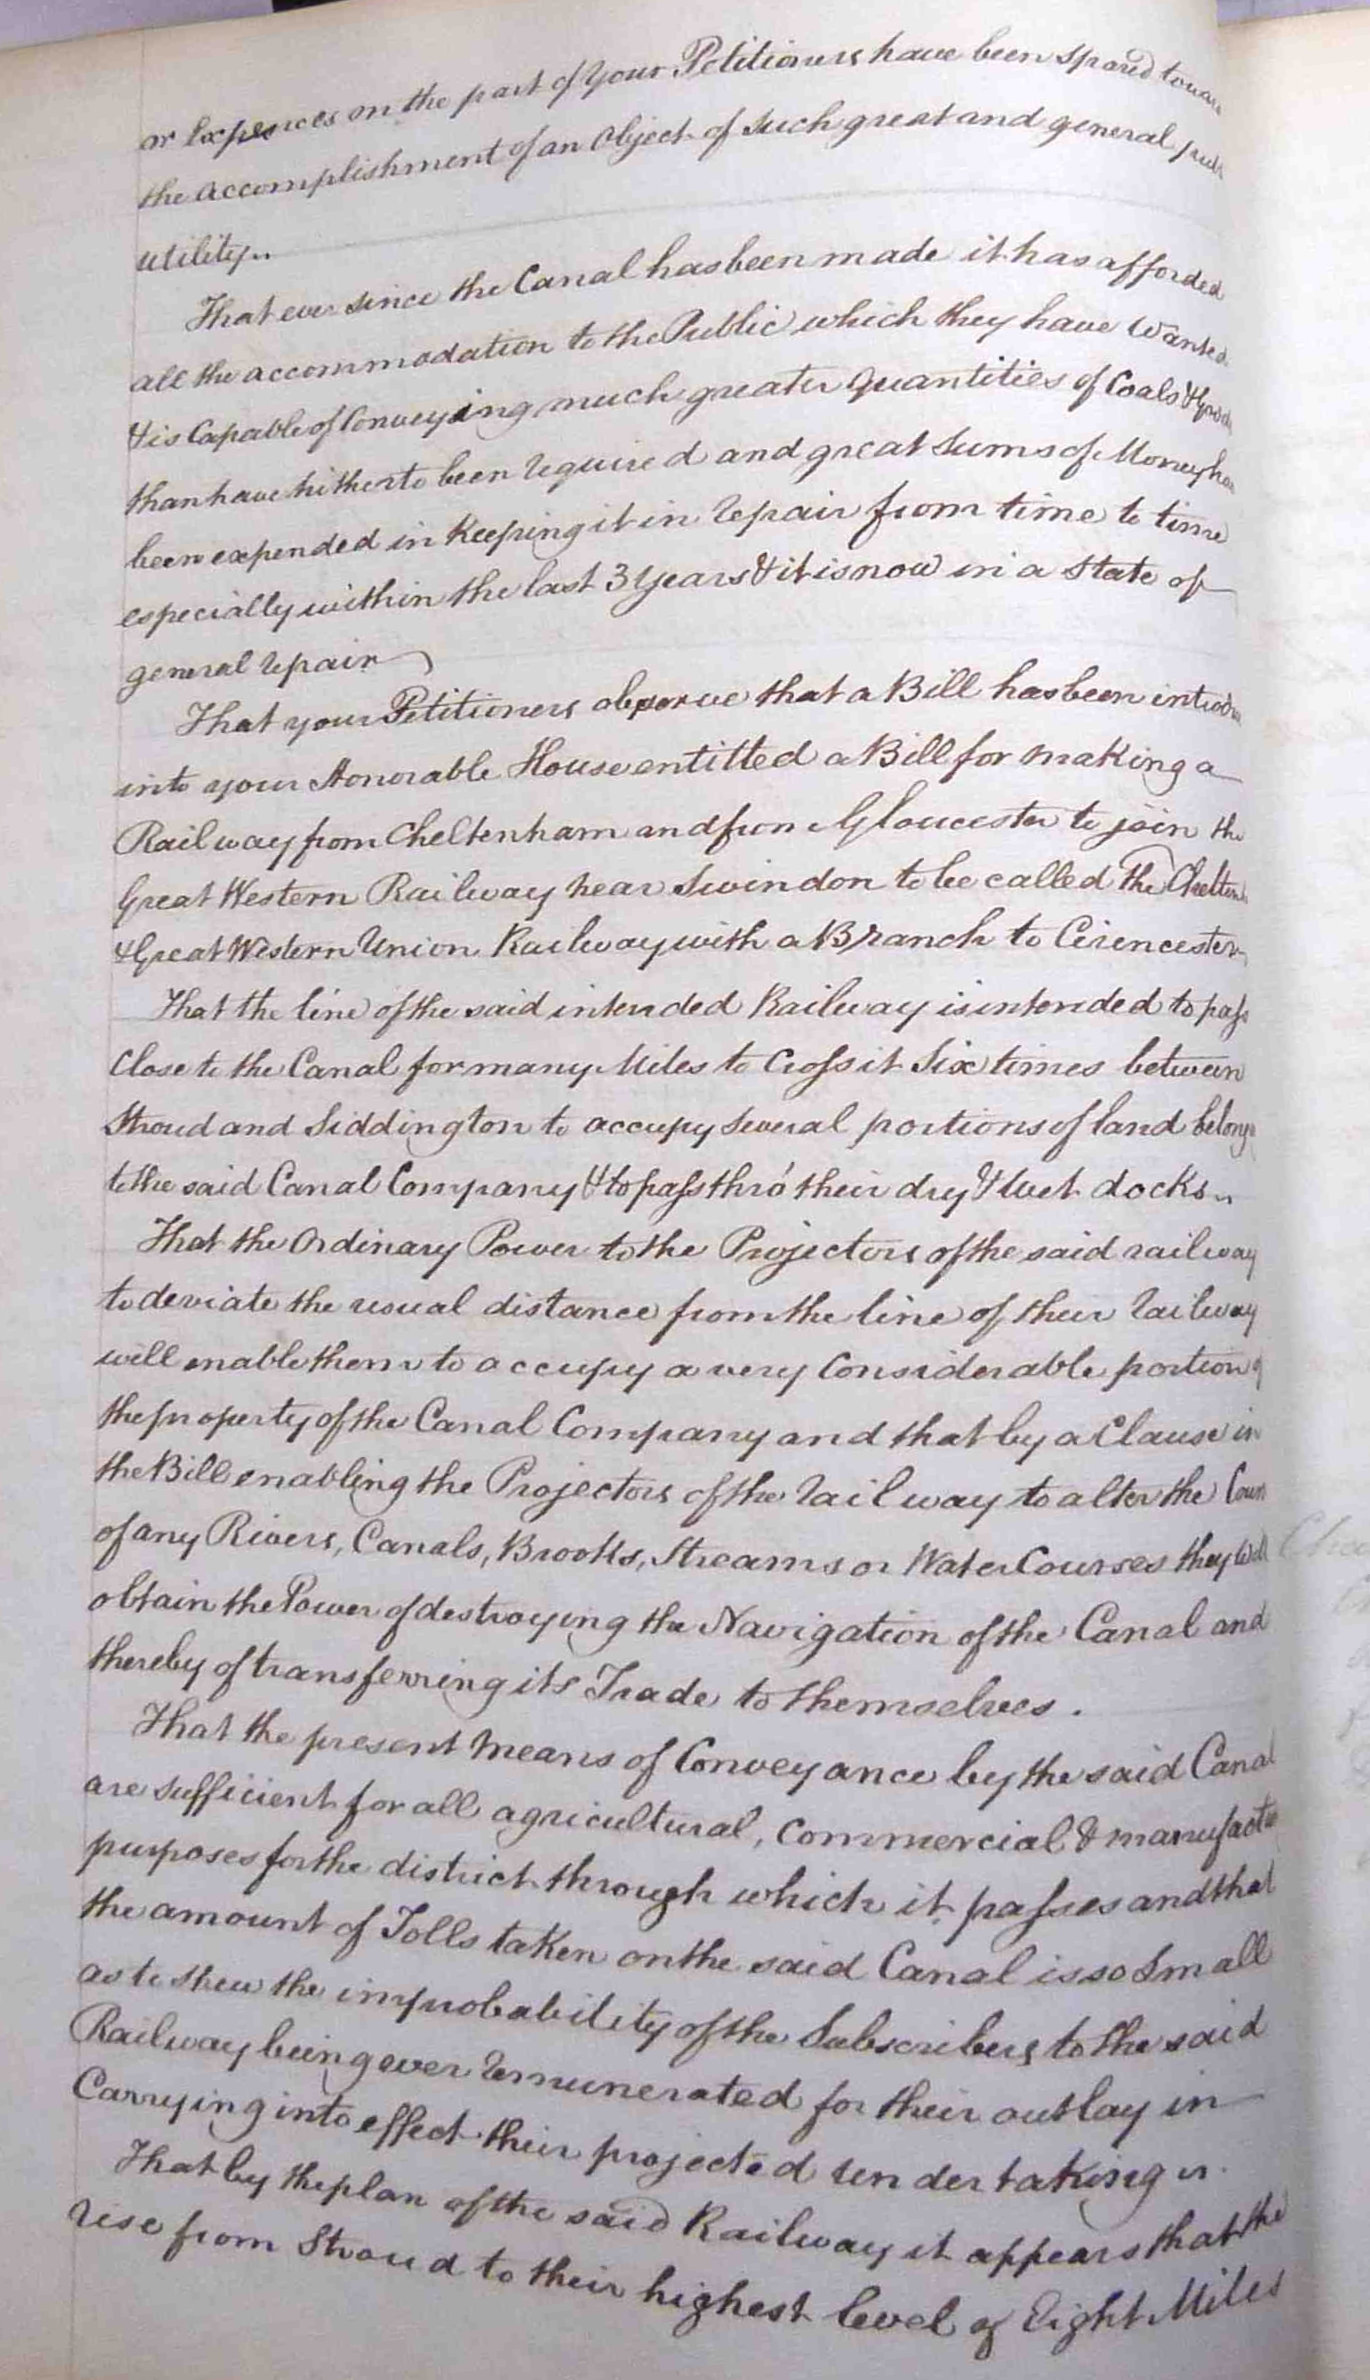 or Expences on the part of Your Petitioners have been spared towar
the accomplishment of an Object of such great and general pub
utility..
That ever since the Canal has been made it has afforded
all the accommodation to the Public which they have wanted
& is Capable of Conveying much greater Quantities of Coals & Goods
than have hitherto been required and great Sums of Money have
been expended in Keeping it in repair from time to time
especially within the last 3 Years & it is now in a State of
general repair
That your Petitioners observe that a Bill has been introdu
into your Honorable House entitled a Bill for making a
Railway from Cheltenham and from Gloucester to join the
Great Western Railway near Swindon to be called the Chelten
& Great Western Union Railway with a Branch to Cirencester
That the line of the said intended Railway is intended to pass
Close to the Canal for many Miles to Cross it Six times between
Stroud and Siddington to occupy several portions of land belong
to the said Canal Company & to pass thro' their dry & wet docks..
That the Ordinary Power to the Projectors of the said railway
to deviate the usual distance from the line of their railway
will enable them to occupy a very Considerable portion of
the property of the Canal Company and that by a Clause in
the Bill enabling the Projectors of the railway to alter the Cours
of any Rivers, Canals, Brooks, Streams or Water Courses they will
obtain the Power of destroying the Navigation of the Canal and
thereby of transferring its Trade to themselves.
That the present means of Conveyance by the said Canal
are sufficient for all agricultural, Commercial & manufactu
purposes for the district through which it passes and that
the amount of Tolls taken on the said Canal is so Small
as to shew the improbability of the Subscribers to the said
Railway being ever remunerated for their outlay in
Carrying into effect their projected undertaking..
That by the plan of the said Railway it appears that the
rise from Stroud to their highest level of Eight Miles